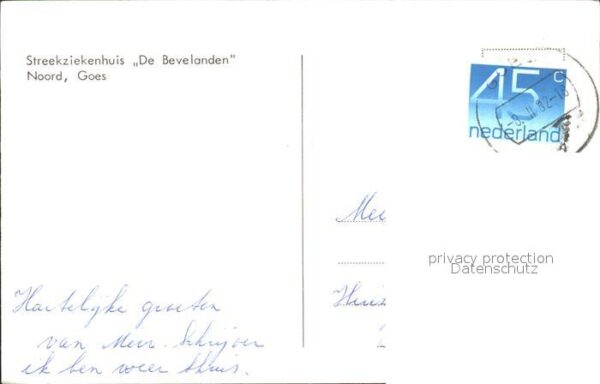 Streekziekenhuis „De Bevelanden"
Noord, Goes
45 c
nederland
privacy protection
Datenschutz
Hartelijke groeten
van Mevr. Schrijver
ik ben weer thuis.